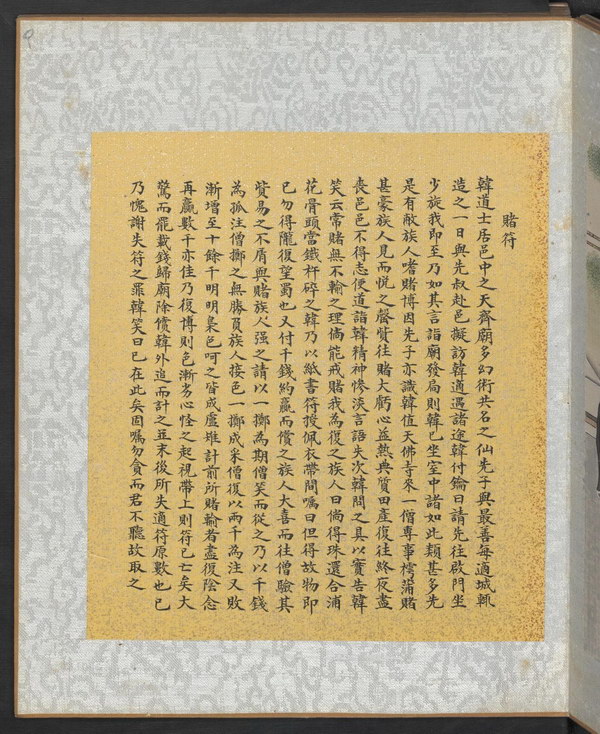 賭符
韓道士居邑中之天齊廟多幻術共名之仙先子與最善每適城輒
造之一日與先叔赴邑擬訪韓適遇諸途韓付鑰曰請先往啟門坐
少旋我即至乃如其言詣廟發扃則韓已坐室中諸如此類甚多先
是有敝族人嗜賭博因先子亦識韓值天佛寺來一僧專事樗蒲賭
甚豪族人見而悅之罄貲往賭大虧心益熱典質田產復往終夜盡
喪邑邑不得志便道詣韓精神慘淡言語失次韓問之具以實告韓
笑云常賭無不輸之理倘能戒賭我為復之族人曰倘得珠還合浦
花骨頭當鐵杵碎之韓乃以紙書符授佩衣帶間囑曰但得故物即
已勿得隴復望蜀也又付千錢約贏而償之族人大喜而往僧驗其
貲易之不屑與賭族人强之請以一擲為期僧笑而從之乃以千錢
為孤注僧擲之無勝負族人接色一擲成采僧復以兩千為注又敗
漸增至十餘千明明梟色呵之皆成盧雉計前所賭輸者盡復陰念
再贏數千亦佳乃復博則色漸劣心怪之起視帶上則符已亡矣大
驚而罷載錢歸廟除償韓外追而計之並末後所失適符原數也已
乃愧謝失符之罪韓笑曰已在此矣固囑勿貪而君不聽故取之